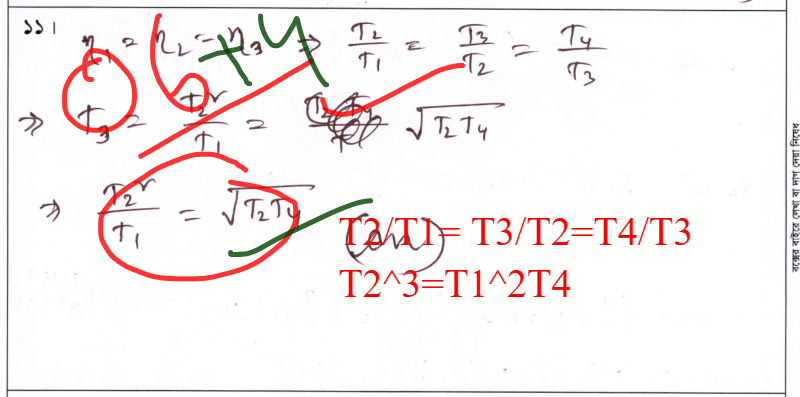 ১১। η₁ = η₂ = η₃ ⇒ T₂/T₁ = T₃/T₂ = T₄/T₃
6+4
⇒ T₃ = T₂²/T₁ = √T₂T₄
⇒ T₂²/T₁ = √T₂T₄ (Ans)
T2/T1= T3/T2=T4/T3
T2^3=T1^2T4
বক্সের বাইরে লেখা বা দাগ দেয়া নিষেধ